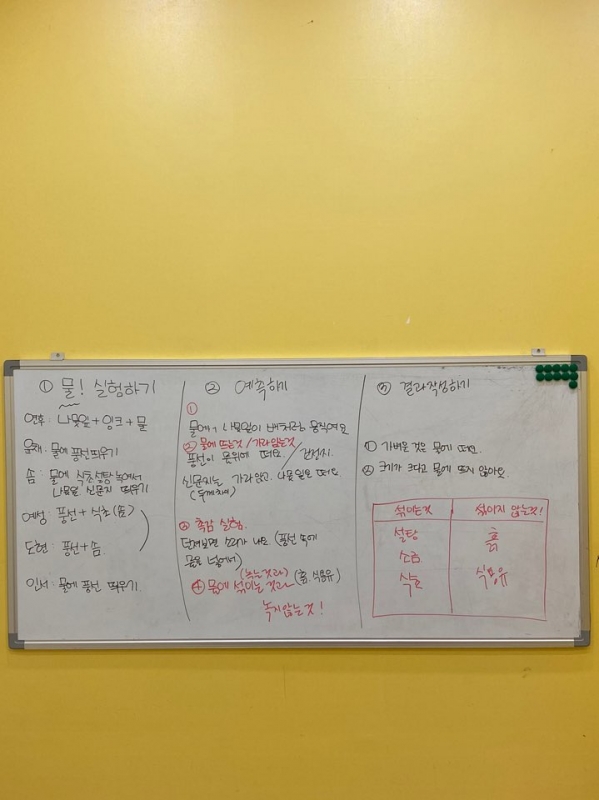 ① 물! 실험하기
연후: 나뭇잎 + 잉크 + 물
물에 풍선 띄우기
솜: 물에 식초 설탕 녹여서
나뭇잎 신문지 띄우기
예성: 풍선 + 식초 (솜)
도현: 풍선 + 솜.
인서: 물에 풍선 띄우기
② 예측하기
①
물에 나뭇잎이 배처럼 움직여요
② 물에 뜨는것 / 가라앉는것
풍선이 물위에 떠요. /
신문지는 가라앉고. 나뭇잎은 떠요
③ 촉감 실험.
소리가 나요. (풍선 속에
넣어서)
(녹는것과)
④ 물에 섞이는 것과 (흙, 식용유)
녹지않는 것!
③ 결과작성하기
① 가벼운 것은 물에 떠요.
② 크기가 크다고 물에 뜨지 않아요
섞이는것 섞이지 않는것!
설탕 흙
소금
식초 식용유